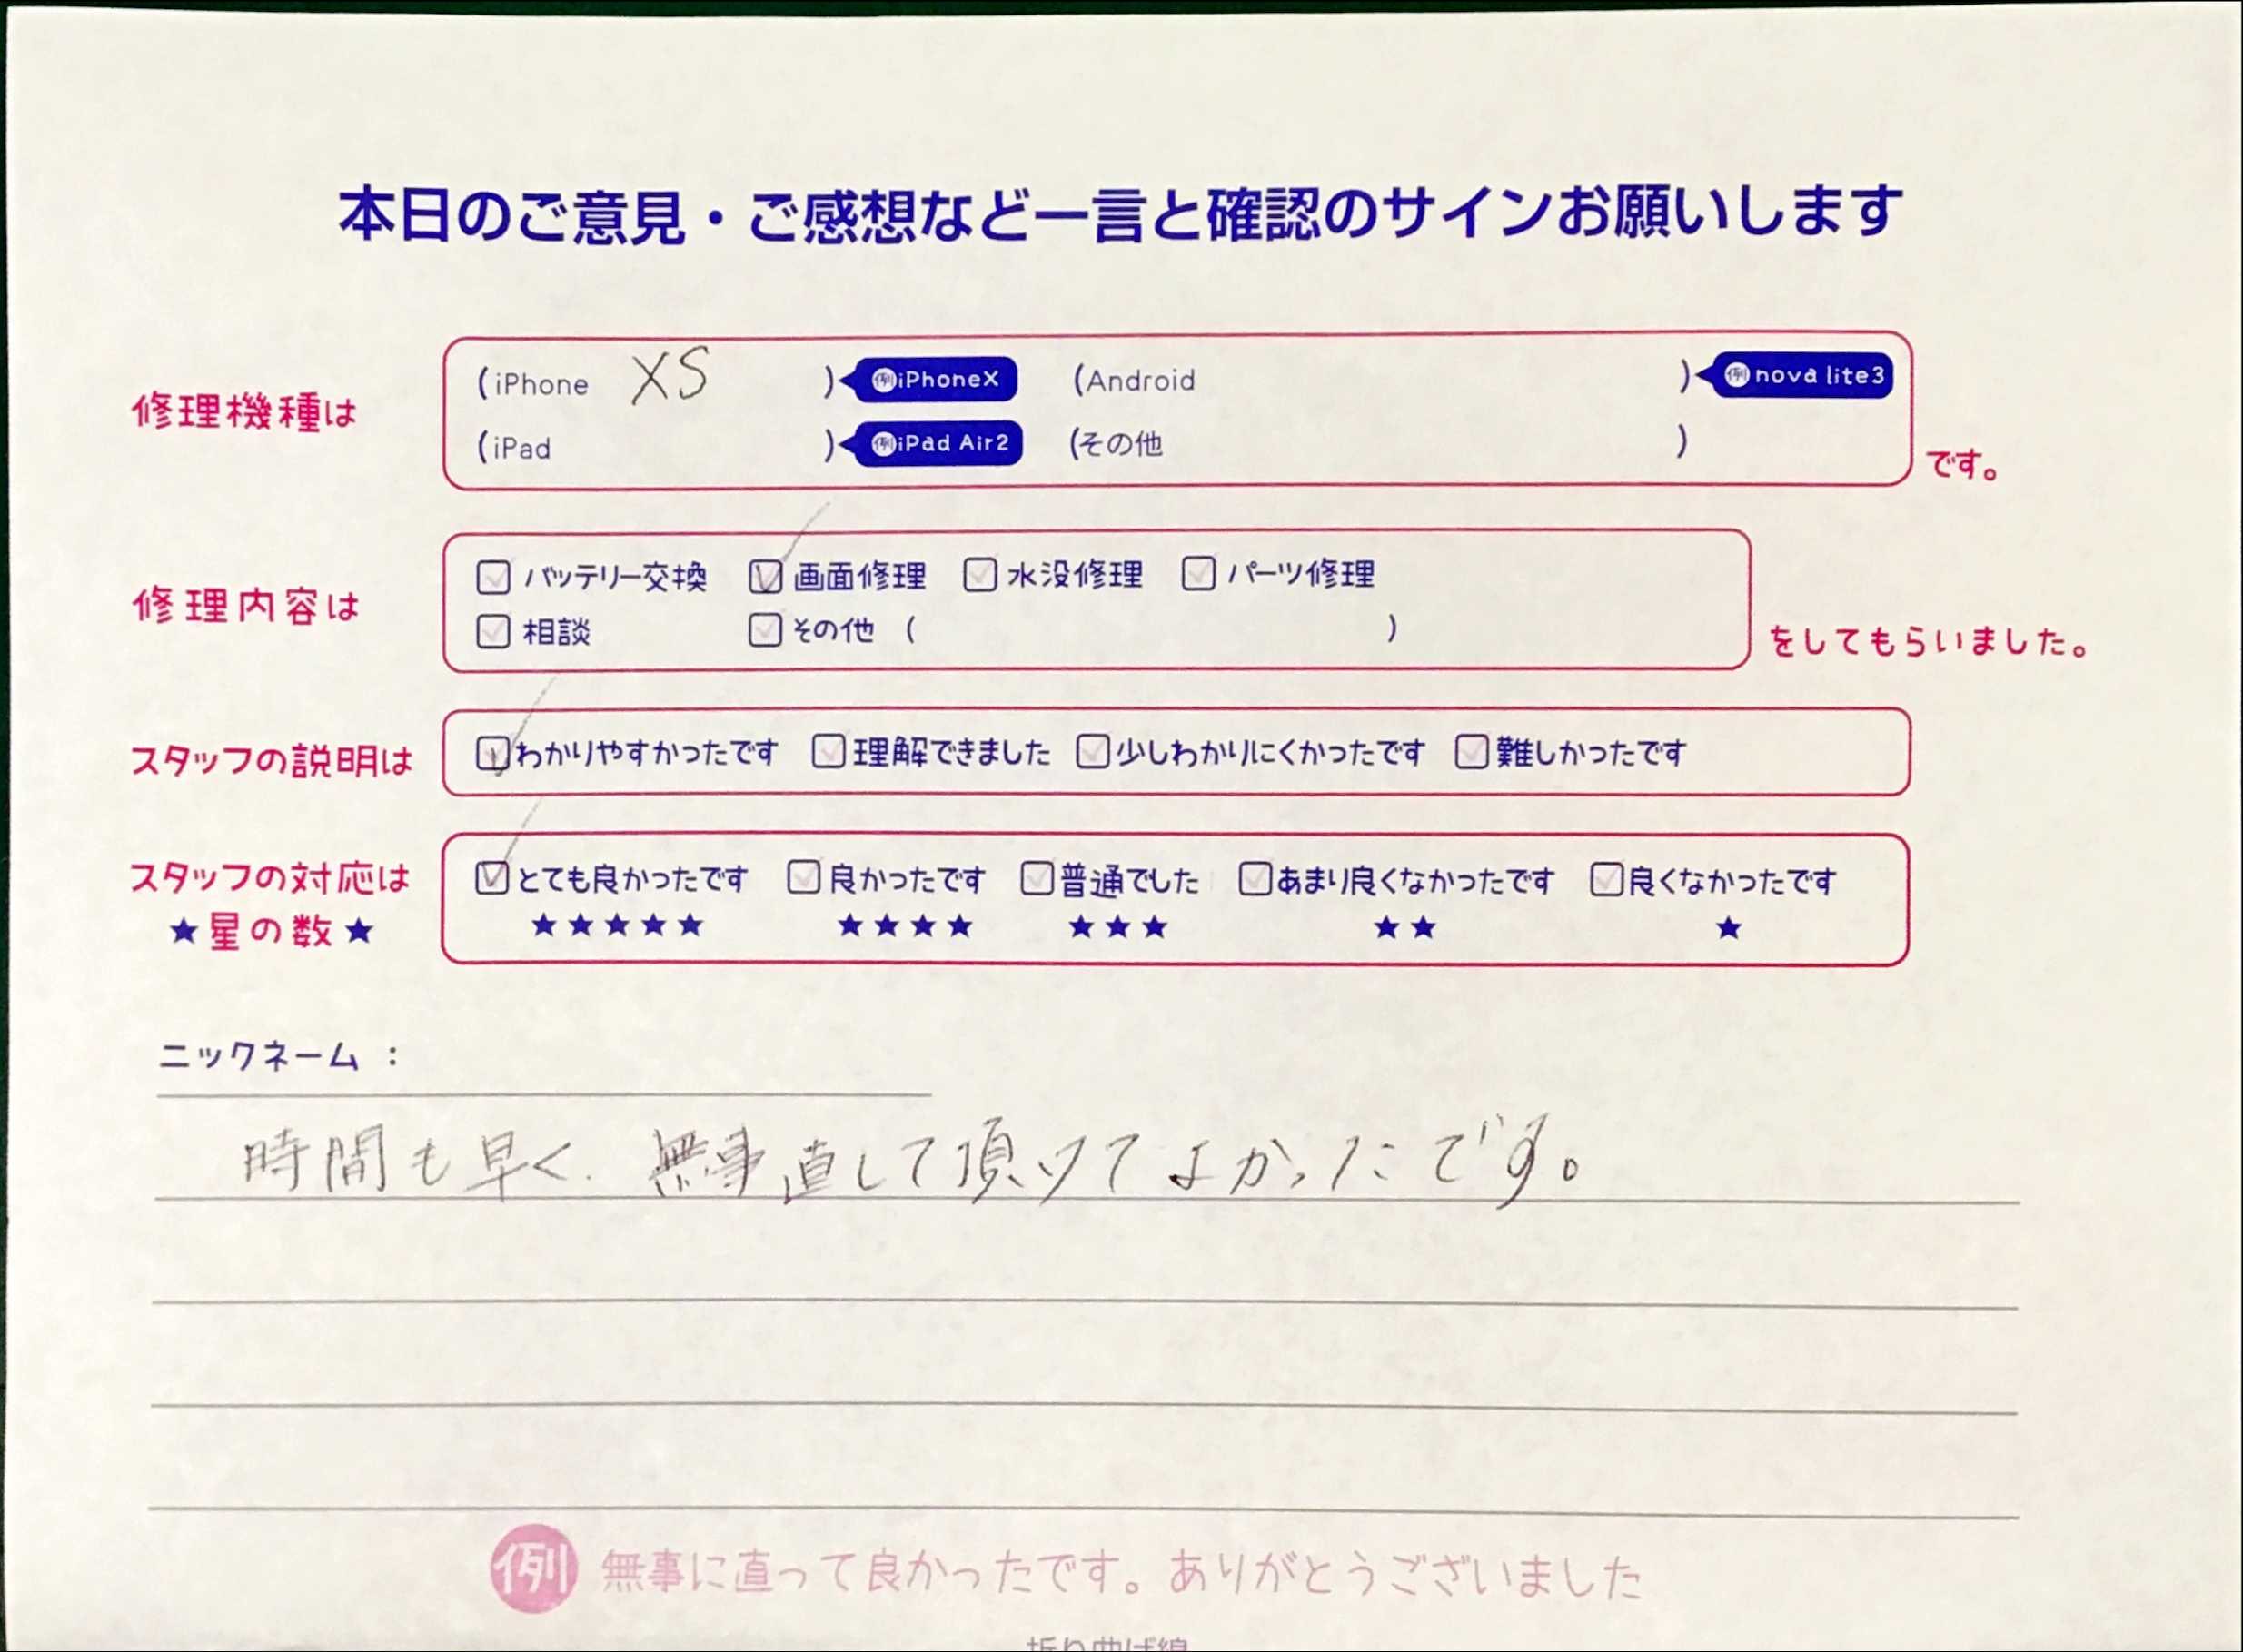 本日のご意見・ご感想など一言と確認のサインお願いします
修理機種は
(iPhone XS ) 例iPhoneX (Android ) 例nova lite3
(iPad ) 例iPad Air2 (その他 ) です。
修理内容は
バッテリー交換 画面修理 水没修理 パーツ修理
相談 その他 ( ) をしてもらいました。
スタッフの説明は わかりやすかったです 理解できました 少しわかりにくかったです 難しかったです
スタッフの対応は とても良かったです 良かったです 普通でした あまり良くなかったです 良くなかったです
★星の数★ ★★★★★ ★★★★ ★★★ ★★ ★
ニックネーム :
時間も早く、無事直して頂けてよかったです。
例 無事に直って良かったです。ありがとうございました
折り曲げ線